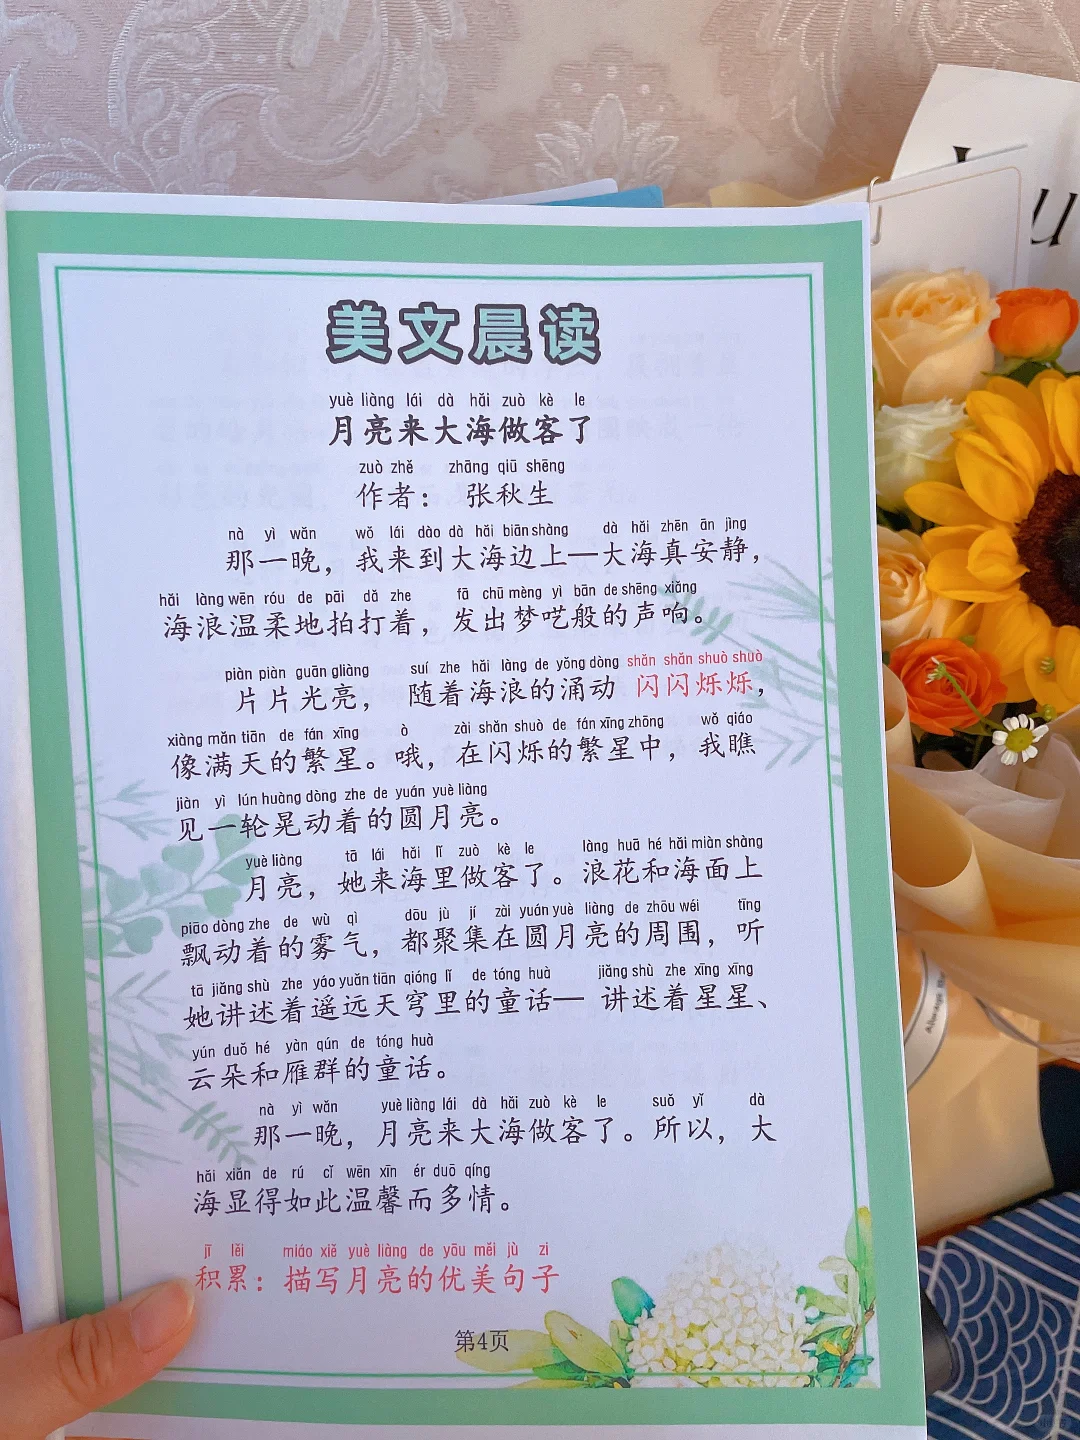 美文晨读
yuè liàng lái dà hǎi zuò kè le
月亮来大海做客了
zuò zhě zhāng qiū shēng
作者： 张秋生
nà yì wǎn wǒ lái dào dà hǎi biān shàng dà hǎi zhēn ān jìng
那一晚，我来到大海边上—大海真安静，
hǎi làng wēn róu de pāi dǎ zhe fā chū mèng yì bān de shēng xiǎng
海浪温柔地拍打着，发出梦呓般的声响。
piàn piàn guān gliàng suí zhe hǎi làng de yǒng dòng shǎn shǎn shuò shuò
片片光亮， 随着海浪的涌动 闪闪烁烁，
xiàng mǎn tiān de fán xīng ò zài shǎn shuò de fán xīng zhōng wǒ qiáo
像满天的繁星。哦，在闪烁的繁星中，我瞧
jiàn yì lún huàng dòng zhe de yuán yuè liàng
见一轮晃动着的圆月亮。
yuè liàng tā lái hǎi lǐ zuò kè le làng huā hé hǎi miàn shàng
月亮，她来海里做客了。浪花和海面上
piāo dòng zhe de wù qì dōu jù jí zài yuán yuè liàng de zhōu wéi tīng
飘动着的雾气，都聚集在圆月亮的周围，听
tā jiǎng shù zhe yáo yuǎn tiān qióng lǐ de tóng huà jiǎng shù zhe xīng xīng
她讲述着遥远天穹里的童话— 讲述着星星、
yún duǒ hé yàn qún de tóng huà
云朵和雁群的童话。
nà yì wǎn yuè liàng lái dà hǎi zuò kè le suǒ yǐ dà
那一晚，月亮来大海做客了。所以，大
hǎi xiǎn de rú cǐ wēn xīn ér duō qíng
海显得如此温馨而多情。
jī lěi miáo xiě yuè liàng de yōu měi jù zi
积累：描写月亮的优美句子
第4页